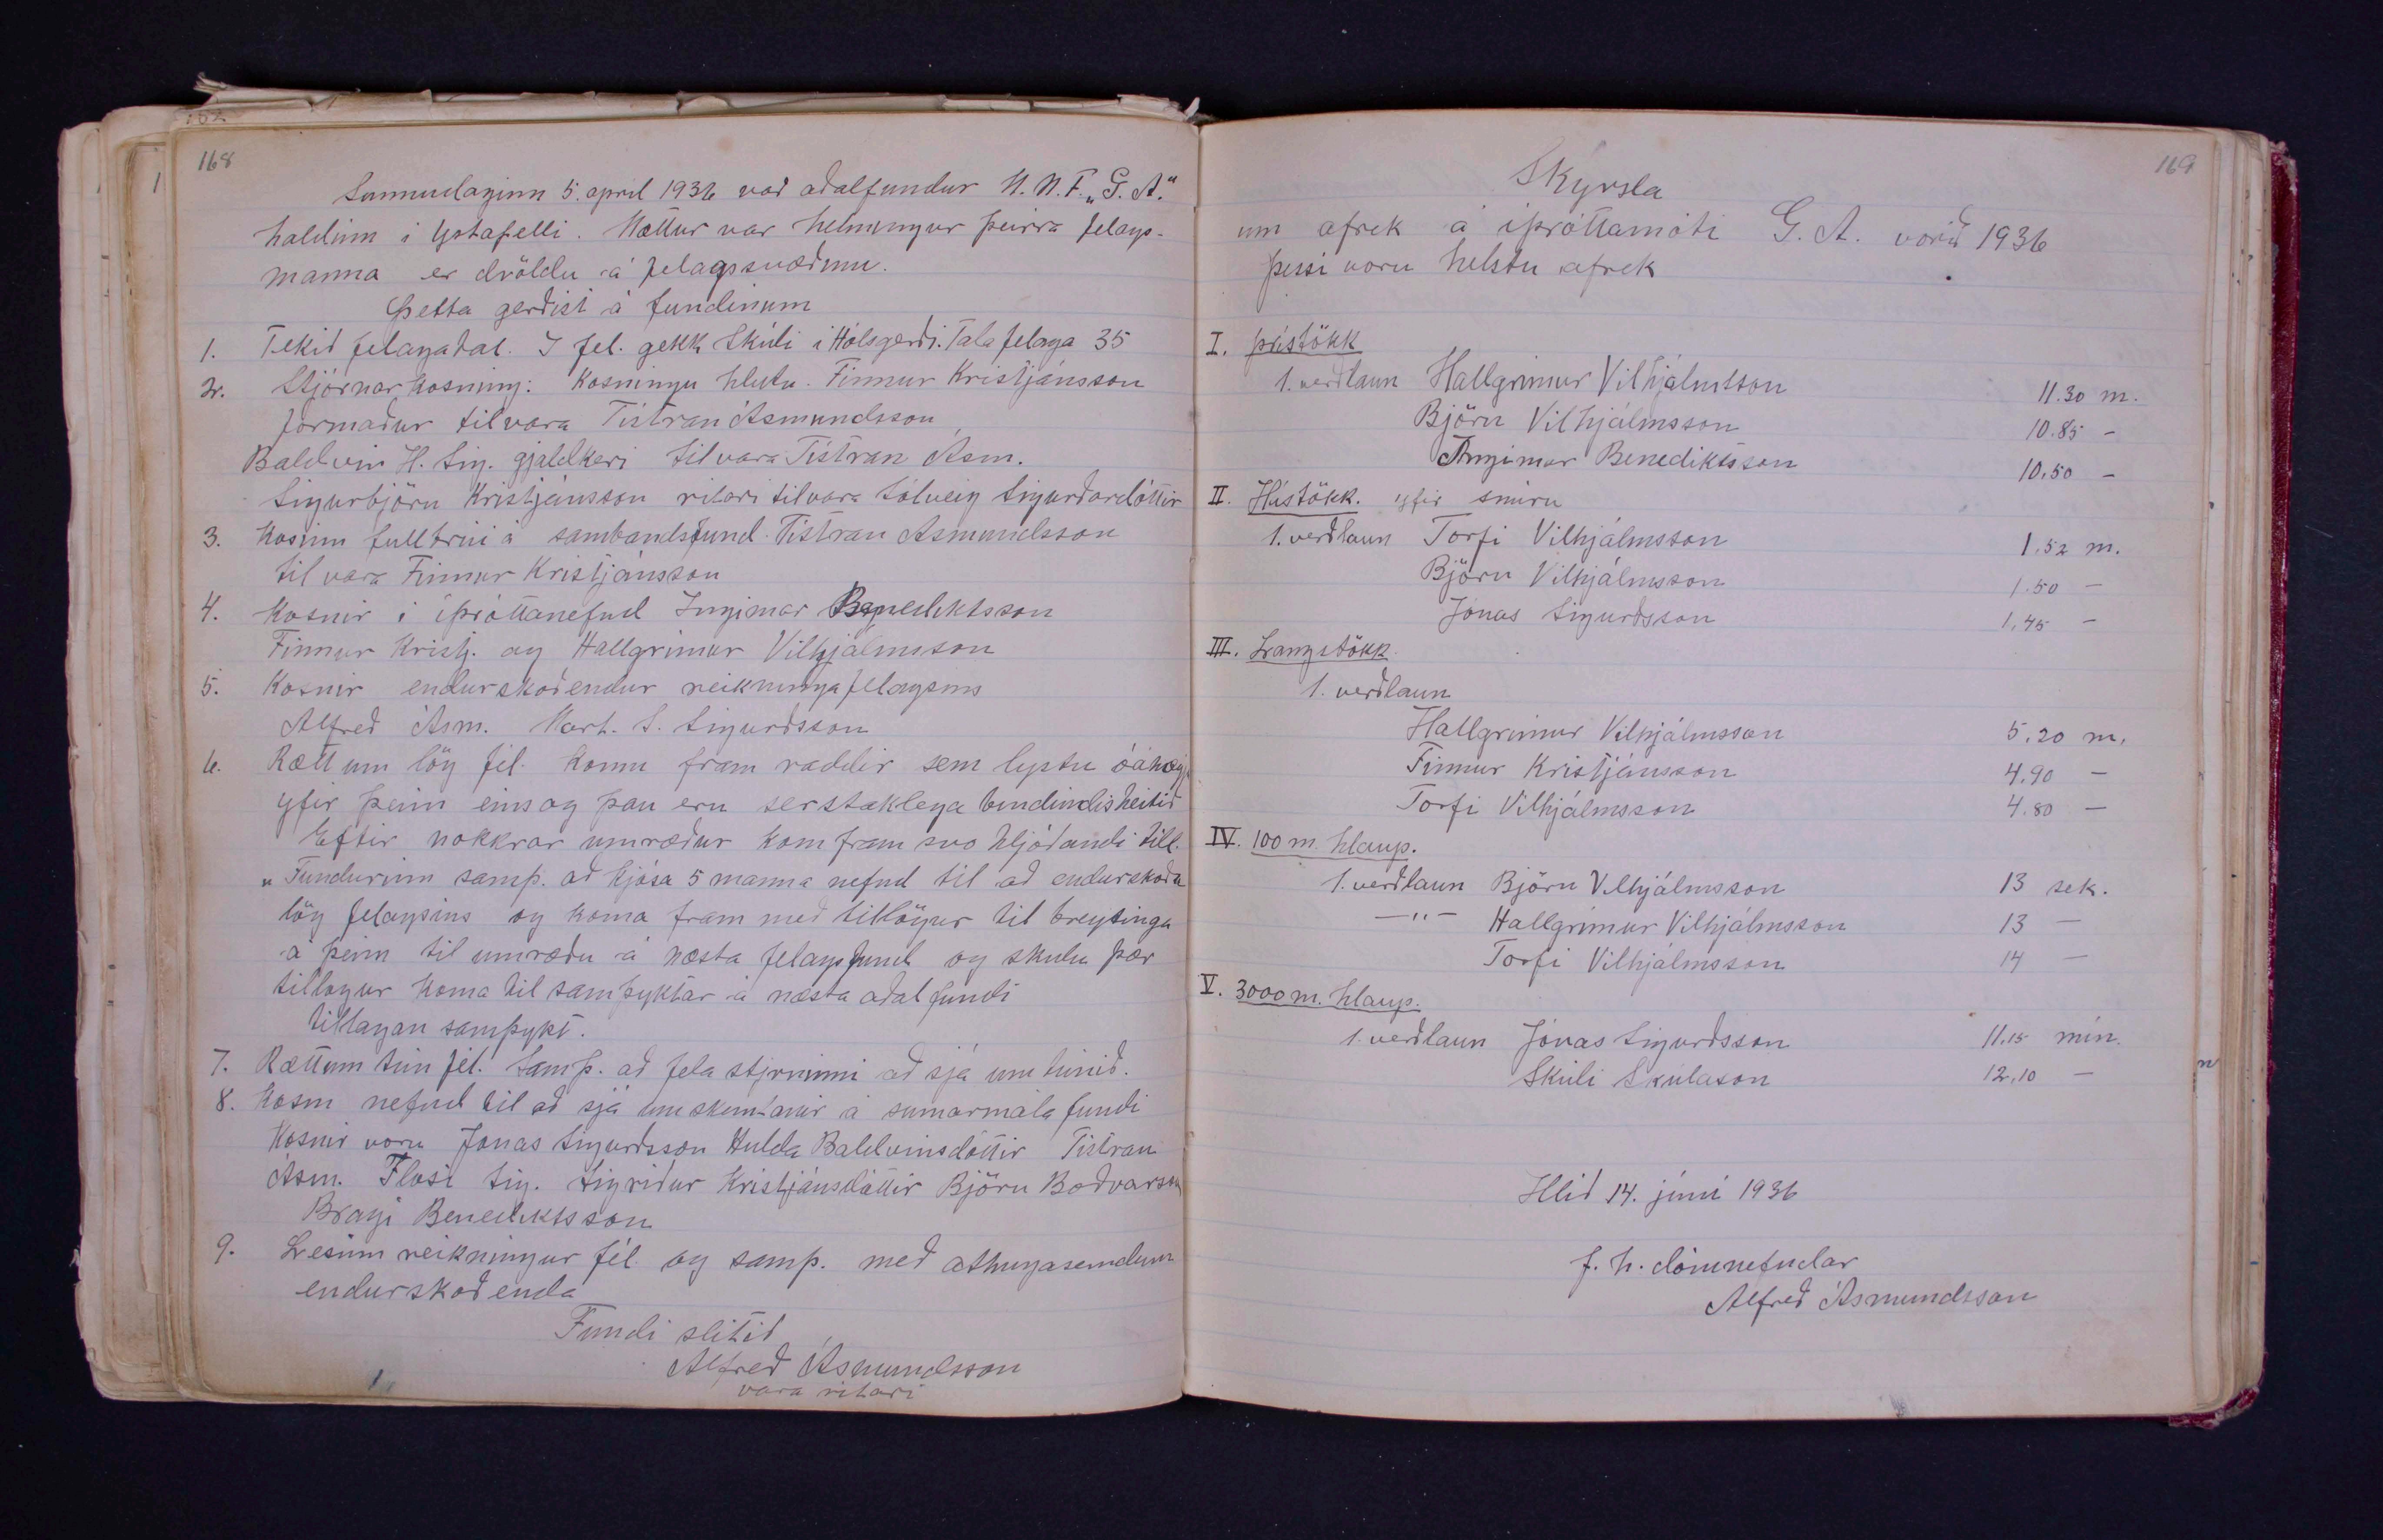 168
Sunnudaginn 5. april 1936 vað aðalfundur U.M.F. „G.A."
haldinn i Ystafelli. Mættur var helmingur þeirra felags-
manna er dvöldu á felagssvæðinu.
Þetta gerðist á fundinum
1. Tekið felagatal. I fel. gekk Skúli i Hólsgerði. Tala felaga 35
2. Stjórnar kosning: Kosningu hlutu. Finnur Kristjánsson
formaður til vara Tistran Ásmundsson
Baldvin H. Sig. gjaldkeri til vara Tistran Ásm.
Sigurbjörn Kristjánsson ritari til vara Sólveig Sigurðardóttir
3. Kosinn fulltrúi á sambandsfund. Tistran Asmundsson
til vara Finnur Kristjánsson
4. Kosnir i iþróttanefnd Ingimar Benediktsson
Finnur Kristj. og Hallgrimur Vilhjálmsson
5. Kosnir endurskoðendur reikninga felagsins
Alfreð Ásm. Mart. S. Sigurðsson
6. Rætt um lög fél. Komu fram raddir sem lystu óánægju
yfir þeim eins og þau eru serstaklega bindindisheitið
Eftir nokkrar umræður kom fram svo hljóðandi till.
„Fundurinn samþ. að kjósa 5 manna nefnd til að endurskoða
lög felagsins og koma fram með tillögur til breytinga
á þeim til umræðu á næsta felagsfund og skulu þær
tillogur koma til samþyktar á næsta aðal fundi
tillagan samþykt.
7. Rætt um tún fél. Samþ. að fela stjrninni að sjá um túnið.
8. Kosin nefnd til að sjá um skemtanir á sumarmála fundi
Kosnir voru Jonas Sigurðsson Hulda Baldvinsdóttir Tistran
Ásm. Flosi Sig. Sigriður Kristjánsdóttir Björn Boðvarson
Bragi Benediktsson
9. Lesinn reikningur fél. og samþ. með athugasemdum
endurskoðenda
Fundi slitið
Alfreð Ásmundsson
vara ritari
169
Skyrsla
um afrek á iþróttamóti G. A. vorið 1936
þessi voru helstu afrek
I. þristökk
1. verðlaun Hallgrimur Vilhjálmsson 11.30 m.
Björn Vilhjálmsson 10.85 -
Ingimar Benediktsson 10.50 -
II. Hástökk. yfir snúru
1. verðlaun Torfi Vilhjálmsson 1.52 m.
Björn Vilhjálmsson 1.50 -
Jónas Sigurðsson 1.45 -
III. Langstökk.
1. verðlaun
Hallgrimur Vilhjálmsson 5.20 m.
Finnur Kristjánsson 4.90 -
Torfi Vilhjálmsson 4.80 -
IV. 100 m. hlaup.
1. verðlaun Björn Vilhjálmsson 13 sek.
—"— Hallgrímur Vilhjálmsson 13 -
Torfi Vilhjálmsson 14 -
V. 3000 m. hlaup.
1. verðlaun Jónas Sigurðsson 11.15 mín.
Skúli Skúlason 12.10 -
Hlið 14. júní 1936
f. h. dómnefndar
Alfreð Ásmundsson